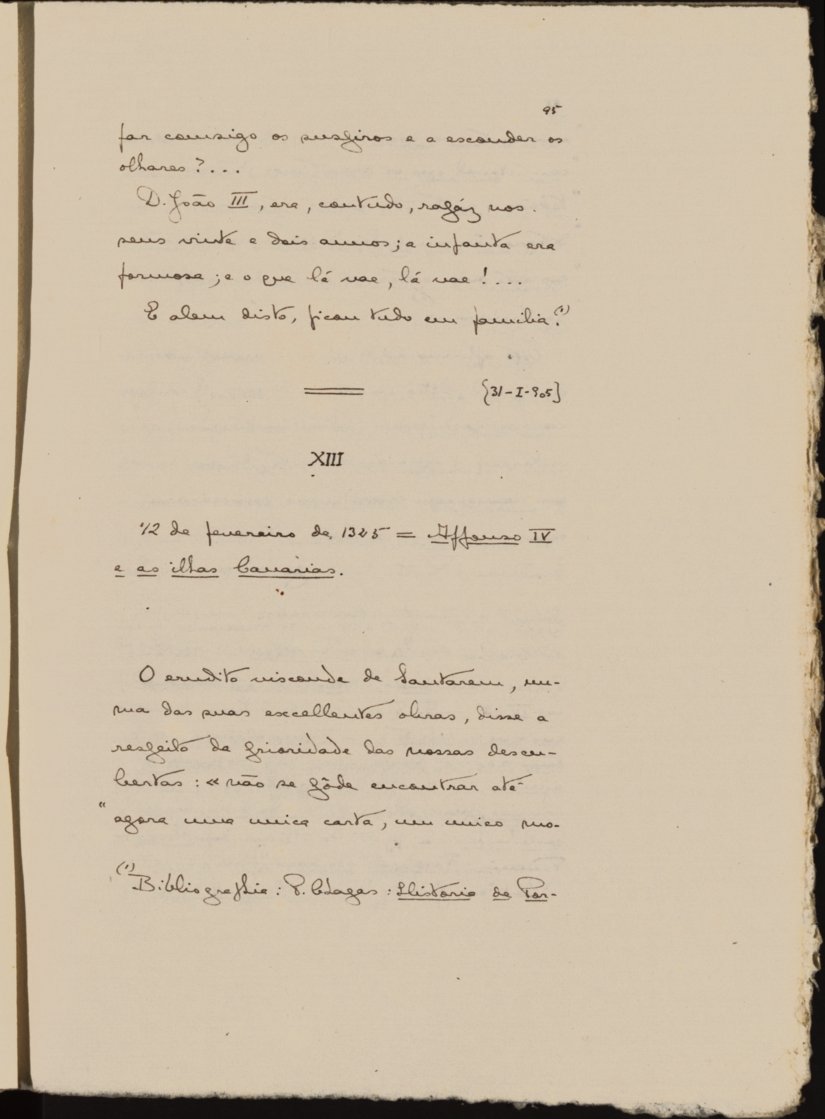 95
far comsigo os suspiros e a esconder os
olhares?...
D. João III, era, contudo, rapáz nos
seus vinte e dois annos; a infanta era
formosa; e o que lá vae, lá vae!...
E alem disto, ficou tudo em familia.(1)
[31-I-905]
XIII
12 de fevereiro de 1345 = Affonso IV
e as ilhas Canárias.
O erudito visconde de Santarem, nu-
ma das suas excellentes obras, disse a
respeito da prioridade das nossas descu-
bertas: « não se póde encontrar até
" agora uma unica carta, um unico mo-
(1) Bibliographia: P. Chagas: Historia de Por-